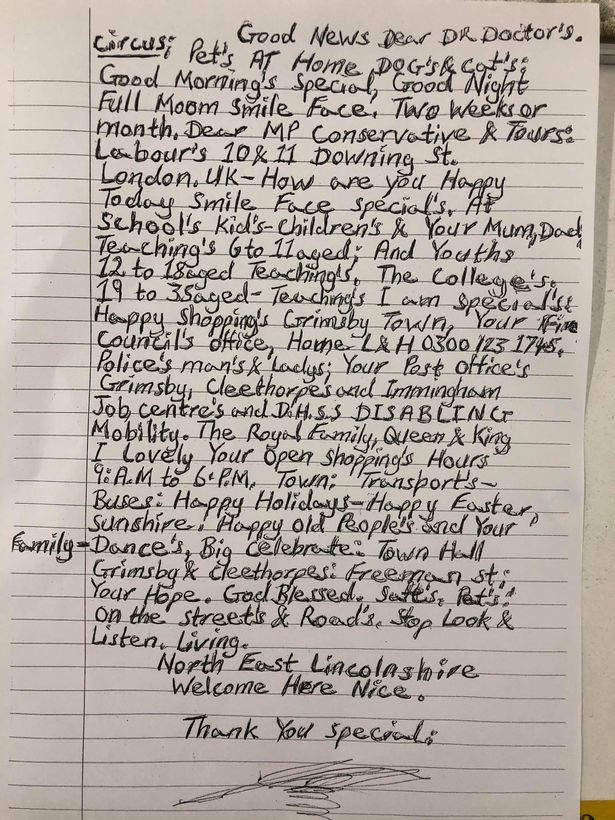 Good News Dear DR Doctor's.
Circus; Pet's AT Home DOG's & Cat's:
Good Morning's Special, Good Night
Full Moom Smile Face. Two Weeks or
month. Dear MP Conservative & Tours:
Labour's 10 & 11 Downing St.
London. UK - How are you Happy
Today Smile Face special's. At
School's Kid's - Children's & Your Mum, Dad
Teaching's 6 to 11 aged; And Youths
12 to 18 aged Teaching's. The College's.
19 to 35 aged - Teaching's I am special's
Happy shopping's Grimsby Town, Your
Council's office, Home L&H 0300 123 1745.
Police's man's & Ladys; Your Post office's
Grimsby, Cleethorpe's and Immingham
Job centre's and D.H.S.S DISABLING
Mobility. The Royal Family, Queen & King
I Lovely Your Open shopping's Hours
9: A.M to 6: P.M. Town: Transport's -
Buses: Happy Holidays - Happy Easter,
Sunshire. Happy old People's and Your
Family - Dance's, Big Celebrate: Town Hall
Grimsby & Cleethorpes: Freeman st;
Your Hope. God Blessed. Pet's:
On the street's & Road's. Stop Look &
Listen. Living.
North East Lincolnshire
Welcome Here Nice.
Thank You special: